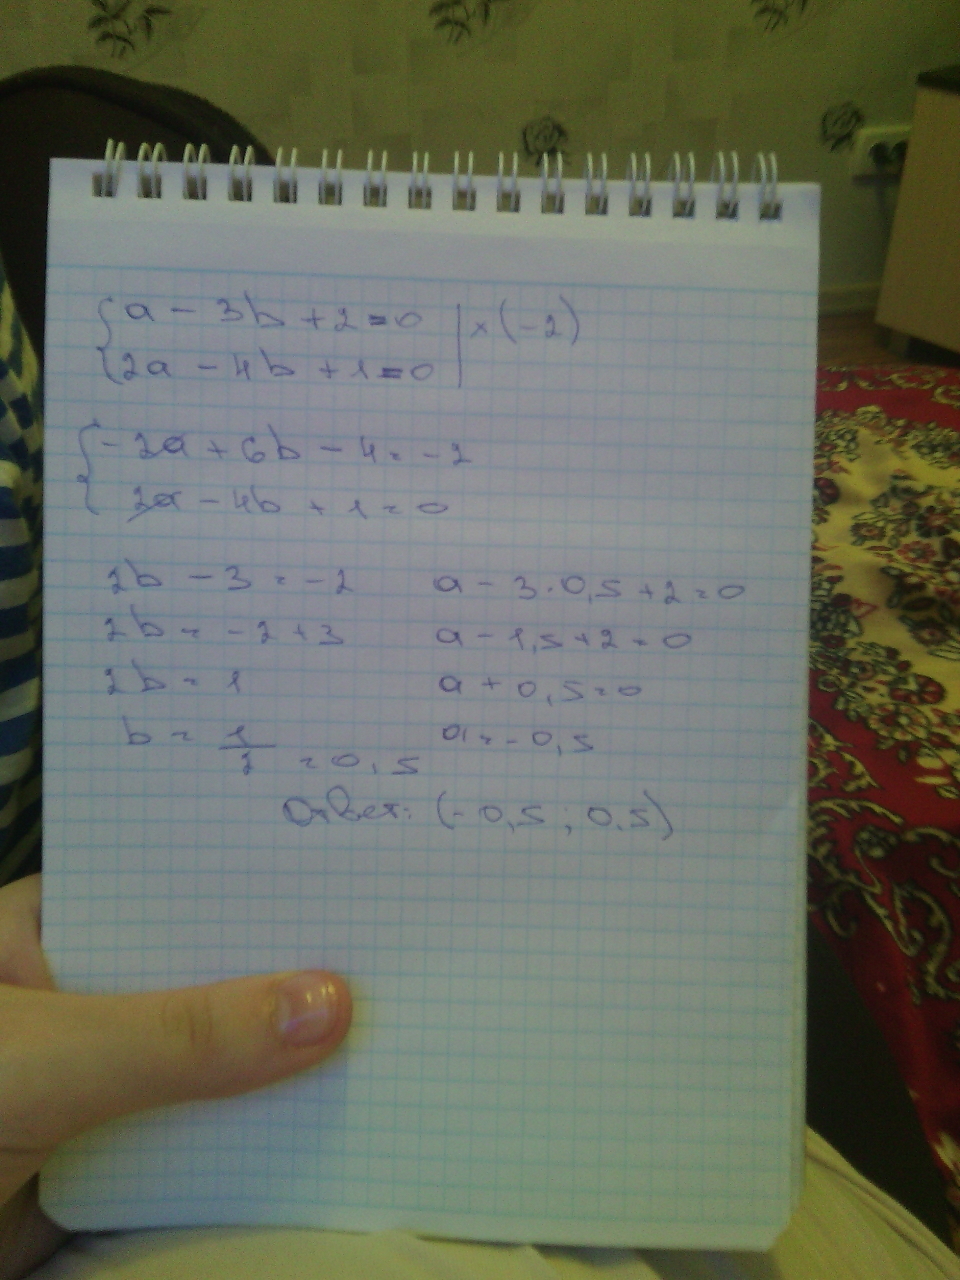 {a - 3b + 2 = 0 | × (-2)
{2a - 4b + 1 = 0 |
{-2a + 6b - 4 = -2
{2a - 4b + 1 = 0
2b - 3 = -2
2b = -2 + 3
2b = 1
b = 1/2 = 0,5
a - 3 · 0,5 + 2 = 0
a - 1,5 + 2 = 0
a + 0,5 = 0
a = -0,5
Ответ: (-0,5 ; 0,5)